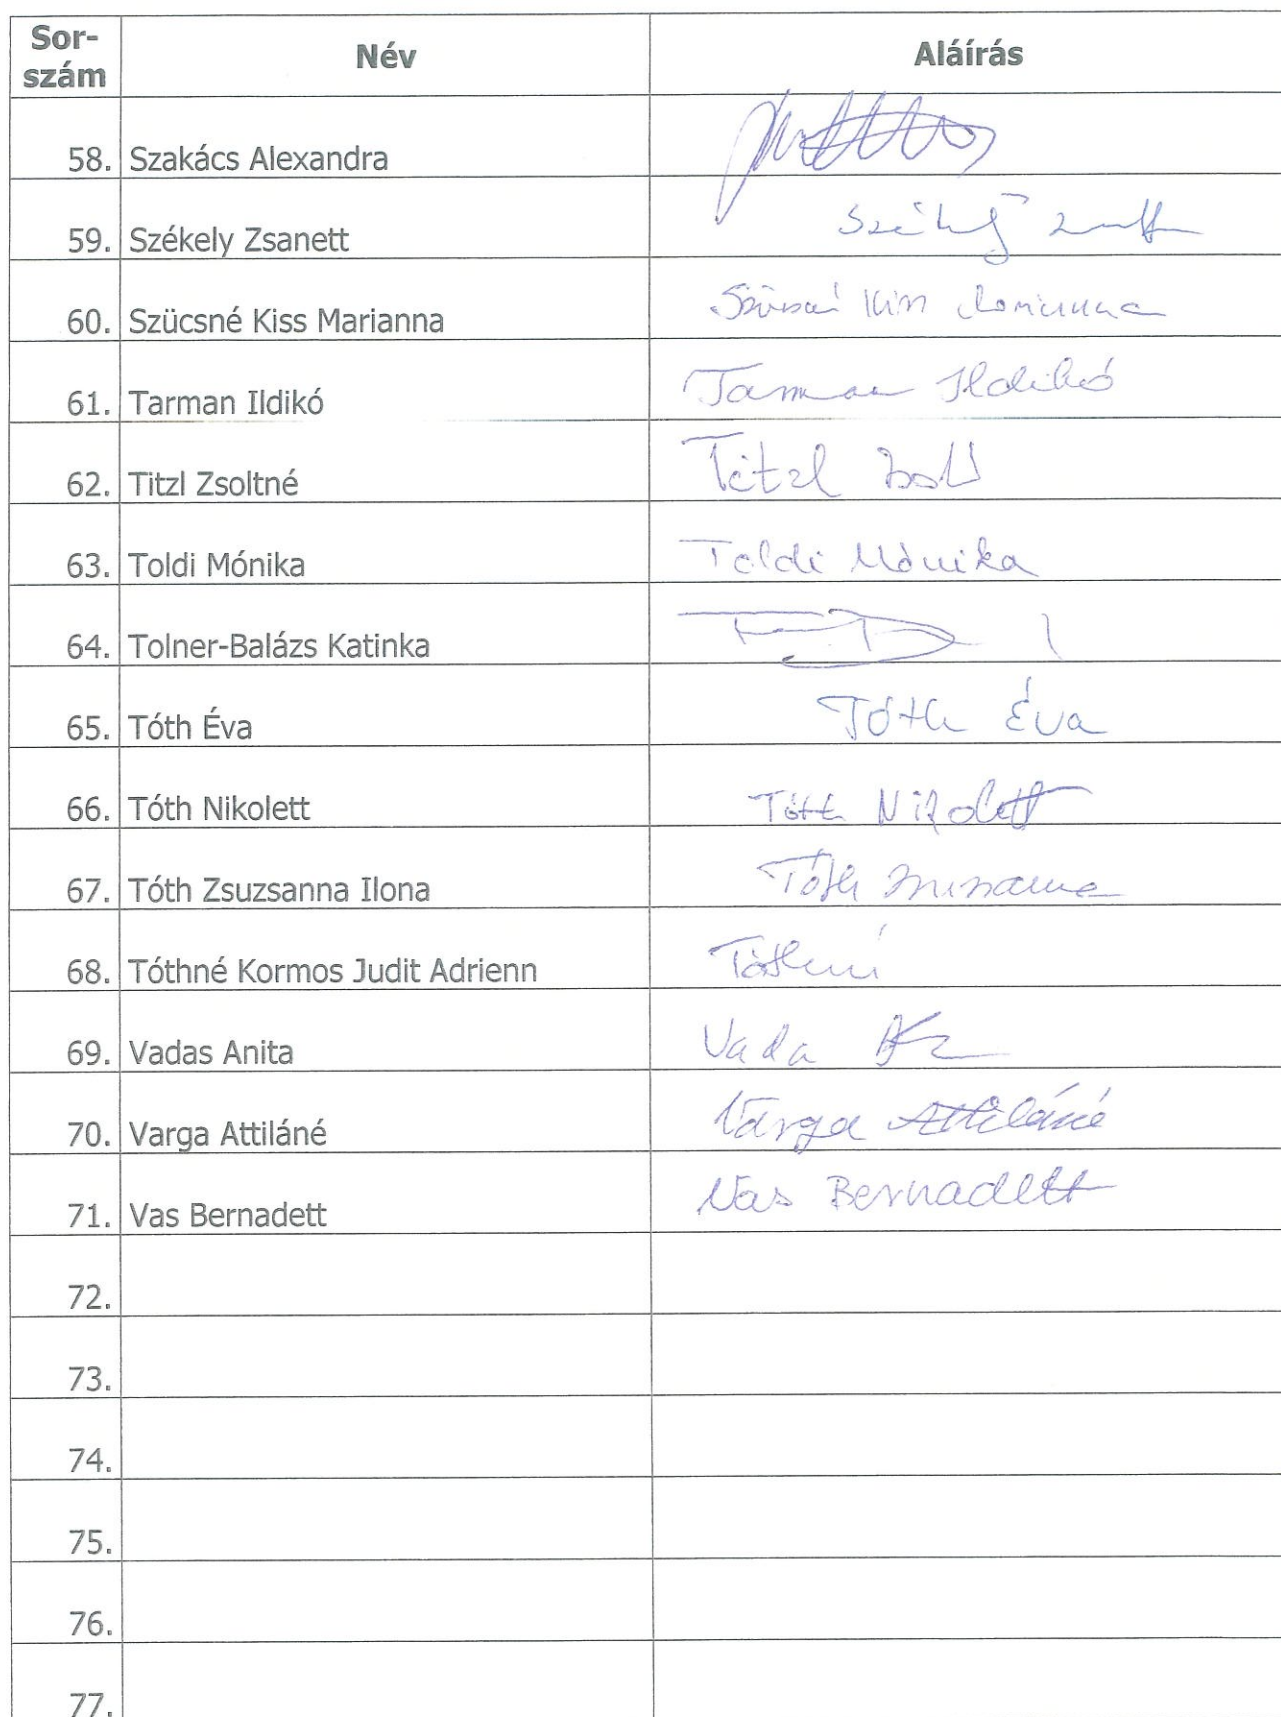 Sor-
szám Név Aláírás
58. Szakács Alexandra
59. Székely Zsanett Székely
60. Szücsné Kiss Marianna Kiss Marianna
61. Tarman Ildikó Tarman Ildikó
62. Titzl Zsoltné Titzl Zsolt
63. Toldi Mónika Toldi Mónika
64. Tolner-Balázs Katinka
65. Tóth Éva Tóth Éva
66. Tóth Nikolett Tóth Nikolett
67. Tóth Zsuzsanna Ilona Tóth Zsuzsanna
68. Tóthné Kormos Judit Adrienn Tóthné
69. Vadas Anita Vada
70. Varga Attiláné Varga Attiláné
71. Vas Bernadett Vas Bernadett
72.
73.
74.
75.
76.
77.